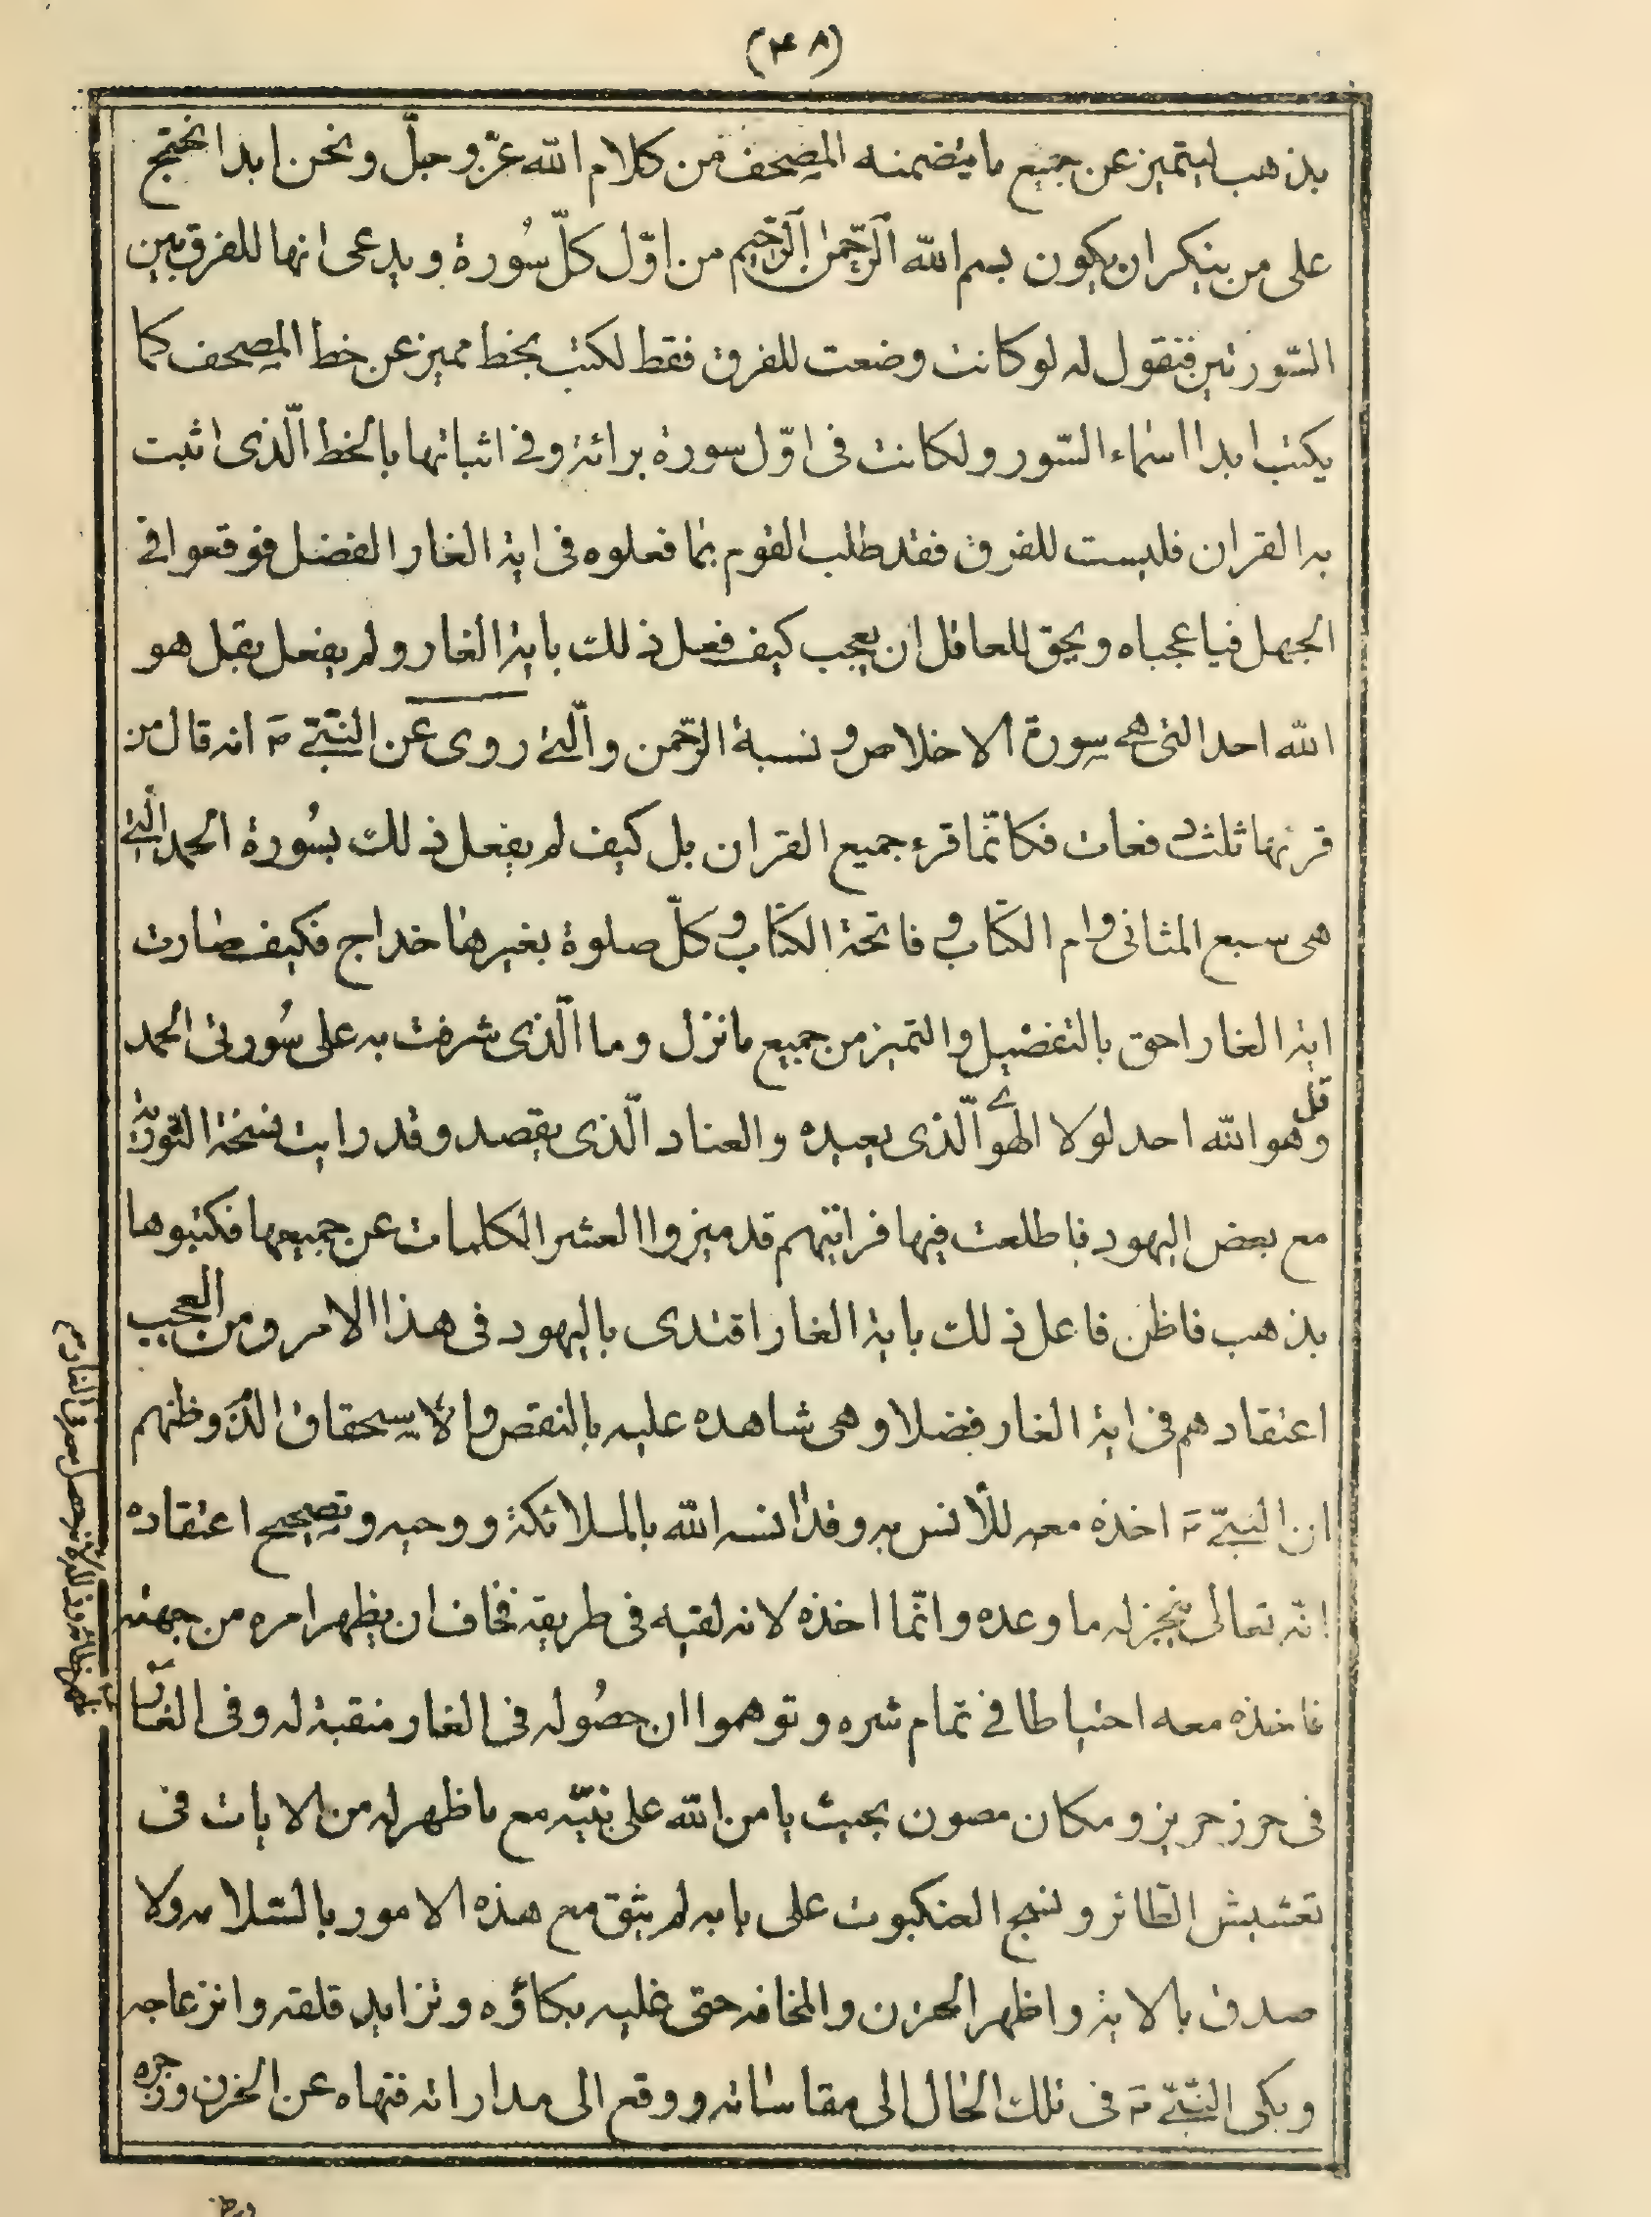 (٤٨)
بذهب ليتميز عن جميع ما يتضمنه المصحف من كلام الله عزّ وجلّ ونحن ابدا نحتج
على من ينكر ان يكون بسم الله الرّحمن الرّحيم من اوّل كلّ سُورة ويدعى انها للفرق بين
السّورتين فنقول له لو كانت وضعت للفرق فقط لكتب بخط مميز عن خط المصحف كما
يكتب ابدا اسماء السّور ولكانت فى اوّل سورة برائة وفى اثباتها بالخط الّذى اثبت
به القران فليست للفرق فقد طلب القوم بما فعلوه فى اية الغار الفضل فوقعوا فى
الجهل فيا عجباه ويحق للعاقل ان يعجب كيف فعل ذلك باية الغار ولم يفعل بقل هو
الله احد التى هى سورة الاخلاص ونسبة الرّحمن والّتى روى عن النّبىّ ص انه قال من
قرئها ثلث دفعات فكانّما قرء جميع القران بل كيف لم يفعل ذلك بسُورة الحمد الّتى
هى سبع المثانى وام الكتاب وفاتحة الكتاب وكلّ صلوة بغيرها خداج فكيف صارت
اية الغار احق بالتفضيل والتميز من جميع ما نزل وما الّذى شرفت به على سُورتى الحمد
وقل هو الله احد لولا الهوى الّذى يعبده والعناد الّذى يقصد وقد رايت نسخة التّورية
مع بعض اليهود فاطلعت فيها فرايتهم قد ميزوا العشر الكلمات عن جميعها فكتبوها
بذهب فاظن فاعل ذلك باية الغار اقتدى باليهود فى هذا الامر ومن العجب
اعتقادهم فى اية الغار فضلا وهى شاهدة عليه بالنقص والاستحقاق الذّم وظنهم
ان النّبىّ ص اخذه معه للأنس به وقد انسه الله بالملائكة ووحيه وتصحيح اعتقاده
انّه تعالى ينجز له ما وعده وانّما اخذه لانه لقيه فى طريقه فخاف ان يظهر امره من جهته
فاخذه معه احتياطا فى تمام شره وتوهموا ان حصُوله فى الغار منقبة له وفى الغار
فى حرز حريز ومكان مصون بحيث يامن الله على نبيّه مع ما ظهر له من الايات فى
تعشيش الطّائر ونسج العنكبوت على بابه لم يثق مع هذه الامور بالسّلامه ولا
صدق بالاية واظهر الحزن والمخافه حتى غلبه بكاؤه وتزايد قلقه وانزعاجه
وبكى النّبىّ ص فى تلك الحال الى مقاساته ووقع الى مداراته فنهاه عن الحزن وزجره